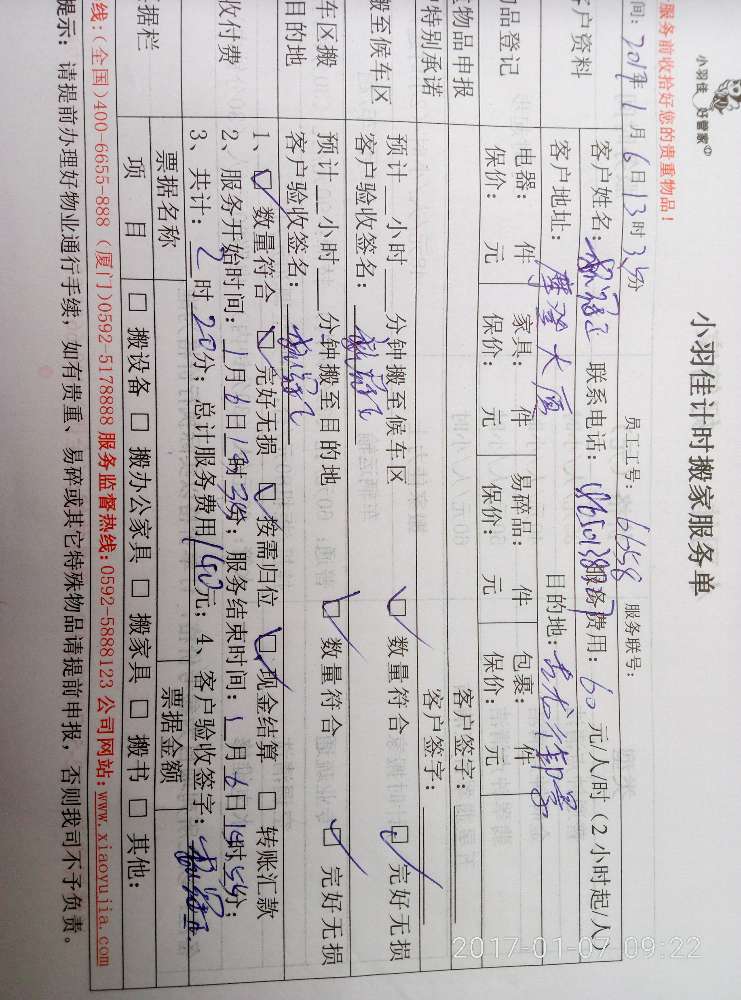 小羽佳 好管家
小羽佳计时搬家服务单
服务前收拾好您的贵重物品！
员工工号：6658 服务联号：
间：2017年1月6日13时35分
客户资料
客户姓名： 联系电话： 服务费用：60元/人/时（2小时起/人）
客户地址：摩登大厦 目的地：
物品登记
电器： 件 家具： 件 易碎品： 件 包裹： 件
保价： 元 保价： 元 保价： 元 保价： 元
物品申报
客户签字：
特别承诺
客户签字：
搬至候车区
预计__小时__分钟搬至候车区 数量符合 完好无损
客户验收签名：
车区搬
目的地
预计__小时__分钟搬至目的地 数量符合 完好无损
客户验收签名：
收付费
1、 数量符合 完好无损 按需归位 现金结算 转账汇款
2、服务开始时间：1月6日 时 分；服务结束时间：1月6日 时 分；
3、共计：2时20分；总计服务费用140元；4、客户验收签字：
据栏
票据名称 票据金额
项 目 搬设备 搬办公家具 搬家具 搬书 其他：
线：(全国)400-6655-888 (厦门)0592-5178888 服务监督热线：0592-5888123 公司网站：www.xiaoyujia.com
提示：请提前办理好物业通行手续，如有贵重、易碎或其它特殊物品请提前申报，否则我司不予负责。
2017-01-07 09:22